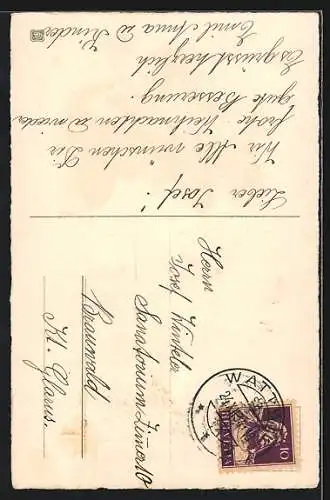 Lieber Josef!
Wir Alle wünschen Dir
frohe Weihnachten u. wieder
gute Besserung.
Es grüsst herzlich
Emil Anna u Kinder
Herrn
Josef Winkler
Sanatorium Zimer 10
Braunwald
Kt. Glarus.
WATT
HELVETIA
10